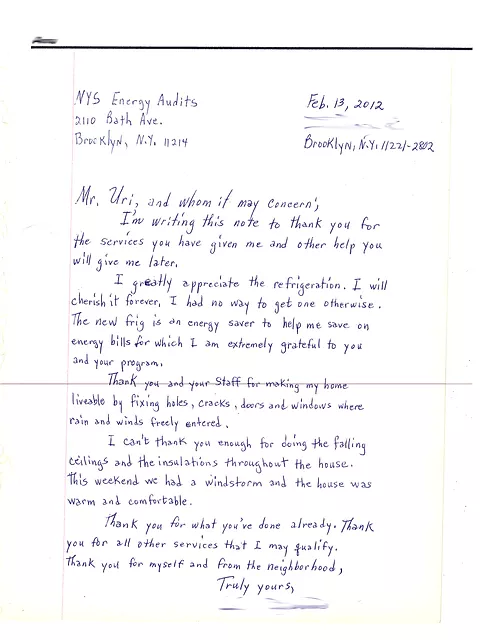 NYS Energy Audits
2110 Bath Ave.
Brooklyn, N.Y. 11214
Feb. 13, 2012
Brooklyn, N.Y. 11221-2802
Mr. Uri, and whom it may concern;
I'm writing this note to thank you for
the services you have given me and other help you
will give me later.
I greatly appreciate the refrigeration. I will
cherish it forever. I had no way to get one otherwise.
The new frig is an energy saver to help me save on
energy bills for which I am extremely grateful to you
and your program.
Thank you and your Staff for making my home
liveable by fixing holes, cracks, doors and windows where
rain and winds freely entered.
I can't thank you enough for doing the falling
ceilings and the insulations throughout the house.
This weekend we had a windstorm and the house was
warm and comfortable.
Thank you for what you've done already. Thank
you for all other services that I may qualify.
Thank you for myself and from the neighborhood,
Truly yours,